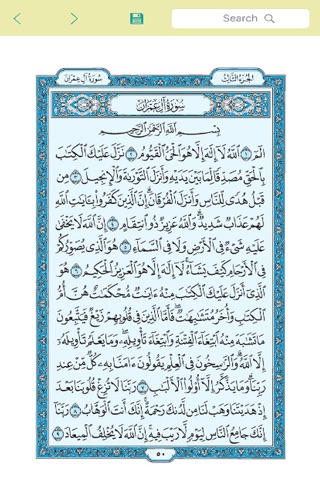 Search
سُورَةُ آلِ عِمْرَانَ الجُزْءُ الثَّالِثُ
سُورَةُ آلِ عِمْرَانَ
بِسْمِ اللَّهِ الرَّحْمَٰنِ الرَّحِيمِ
الٓمٓ ١ ٱللَّهُ لَآ إِلَٰهَ إِلَّا هُوَ ٱلْحَىُّ ٱلْقَيُّومُ ٢ نَزَّلَ عَلَيْكَ ٱلْكِتَٰبَ
بِٱلْحَقِّ مُصَدِّقًا لِّمَا بَيْنَ يَدَيْهِ وَأَنزَلَ ٱلتَّوْرَىٰةَ وَٱلْإِنجِيلَ ٣ مِن
قَبْلُ هُدًى لِّلنَّاسِ وَأَنزَلَ ٱلْفُرْقَانَ إِنَّ ٱلَّذِينَ كَفَرُوا۟ بِـَٔايَٰتِ ٱللَّهِ
لَهُمْ عَذَابٌ شَدِيدٌ وَٱللَّهُ عَزِيزٌ ذُو ٱنتِقَامٍ ٤ إِنَّ ٱللَّهَ لَا يَخْفَىٰ
عَلَيْهِ شَىْءٌ فِى ٱلْأَرْضِ وَلَا فِى ٱلسَّمَآءِ ٥ هُوَ ٱلَّذِى يُصَوِّرُكُمْ
فِى ٱلْأَرْحَامِ كَيْفَ يَشَآءُ لَآ إِلَٰهَ إِلَّا هُوَ ٱلْعَزِيزُ ٱلْحَكِيمُ ٦ هُوَ
ٱلَّذِىٓ أَنزَلَ عَلَيْكَ ٱلْكِتَٰبَ مِنْهُ ءَايَٰتٌ مُّحْكَمَٰتٌ هُنَّ أُمُّ
ٱلْكِتَٰبِ وَأُخَرُ مُتَشَٰبِهَٰتٌ فَأَمَّا ٱلَّذِينَ فِى قُلُوبِهِمْ زَيْغٌ فَيَتَّبِعُونَ
مَا تَشَٰبَهَ مِنْهُ ٱبْتِغَآءَ ٱلْفِتْنَةِ وَٱبْتِغَآءَ تَأْوِيلِهِۦ وَمَا يَعْلَمُ تَأْوِيلَهُۥٓ
إِلَّا ٱللَّهُ وَٱلرَّٰسِخُونَ فِى ٱلْعِلْمِ يَقُولُونَ ءَامَنَّا بِهِۦ كُلٌّ مِّنْ عِندِ
رَبِّنَا وَمَا يَذَّكَّرُ إِلَّآ أُو۟لُوا۟ ٱلْأَلْبَٰبِ ٧ رَبَّنَا لَا تُزِغْ قُلُوبَنَا بَعْدَ
إِذْ هَدَيْتَنَا وَهَبْ لَنَا مِن لَّدُنكَ رَحْمَةً إِنَّكَ أَنتَ ٱلْوَهَّابُ ٨ رَبَّنَآ
إِنَّكَ جَامِعُ ٱلنَّاسِ لِيَوْمٍ لَّا رَيْبَ فِيهِ إِنَّ ٱللَّهَ لَا يُخْلِفُ ٱلْمِيعَادَ ٩
٥٠